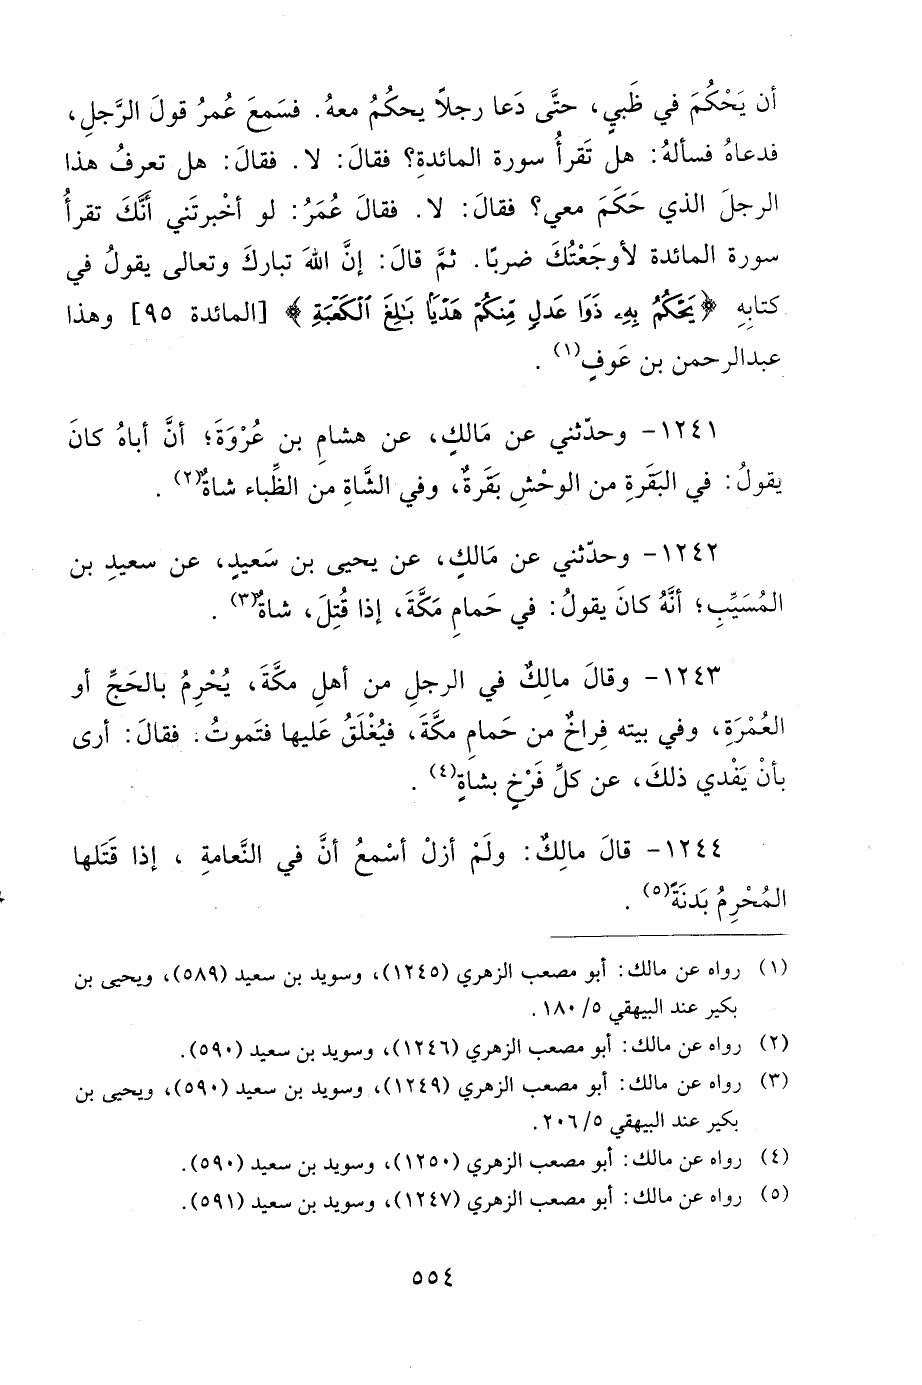 أن يَحْكُمَ في ظَبيٍ، حتَّى دَعا رجلاً يحكُمُ معهُ. فسَمِعَ عُمرُ قولَ الرَّجلِ،
فدعاهُ فسألهُ: هل تَقرأُ سورة المائدةِ؟ فقالَ: لا. فقالَ: هل تعرفُ هذا
الرجلَ الذي حَكَمَ معي؟ فقالَ: لا. فقالَ عُمَرُ: لو أخْبرتَني أَنَّكَ تقرأُ
سورة المائدة لأوجَعْتُكَ ضربًا. ثمَّ قالَ: إنَّ اللهَ تباركَ وتعالى يقولُ في
كتابِهِ ﴿يَحْكُمُ بِهِۦ ذَوَا عَدلٍ مِّنكُمْ هَدْيًا بَٰلِغَ ٱلْكَعْبَةِ﴾ [المائدة ٩٥] وهذا
عبدالرحمن بن عَوفٍ(١).
١٢٤١- وحدّثني عن مَالكٍ، عن هشامِ بن عُرْوَةَ؛ أنَّ أباهُ كانَ
يقولُ: في البَقَرةِ من الوحْشِ بَقَرةٌ، وفي الشَّاةِ من الظِّباء شاةٌ(٢).
١٢٤٢- وحدّثني عن مَالكٍ، عن يحيى بن سَعيدٍ، عن سعيدِ بن
المُسَيِّبِ؛ أنَّهُ كان يقولُ: في حَمامِ مَكَّةَ، إذا قُتِلَ، شاةٌ(٣).
١٢٤٣- وقالَ مالِكٌ في الرجلِ من أهلِ مكَّةَ، يُحْرِمُ بالحَجِّ أو
العُمْرَةِ، وفي بيته فِراخٌ من حَمامِ مكَّةَ، فيُغْلَقُ عَليها فتَموتُ. فقالَ: أرى
بأنْ يَفْدي ذلكَ، عن كلِّ فَرْخٍ بشاةٍ(٤).
١٢٤٤- قالَ مالِكٌ: ولَمْ أزلْ أسْمعُ أنَّ في النَّعامةِ ، إذا قَتَلها
المُحْرِمُ بَدنَةً(٥).
(١) رواه عن مالك: أبو مصعب الزهري (١٢٤٥)، وسويد بن سعيد (٥٨٩)، ويحيى بن
بكير عند البيهقي ٥/ ١٨٠.
(٢) رواه عن مالك: أبو مصعب الزهري (١٢٤٦)، وسويد بن سعيد (٥٩٠).
(٣) رواه عن مالك: أبو مصعب الزهري (١٢٤٩)، وسويد بن سعيد (٥٩٠)، ويحيى بن
بكير عند البيهقي ٥/ ٢٠٦.
(٤) رواه عن مالك: أبو مصعب الزهري (١٢٥٠)، وسويد بن سعيد (٥٩٠).
(٥) رواه عن مالك: أبو مصعب الزهري (١٢٤٧)، وسويد بن سعيد (٥٩١).
٥٥٤